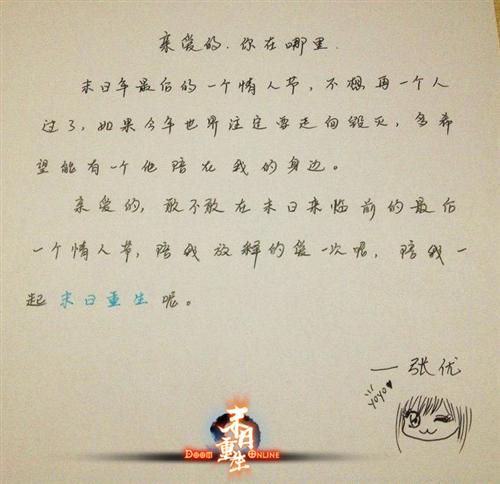 亲爱的.你在哪里.
末日年最后的一个情人节，不想再一个人
过了，如果今年世界注定要走向毁灭，多希
望能有一个他陪在我的身边。
亲爱的，敢不敢在末日来临前的最后
一个情人节，陪我放肆的爱一次呢，陪我一
起末日重生呢。
——张优
yoyo
末日重生
DOOM ONLINE